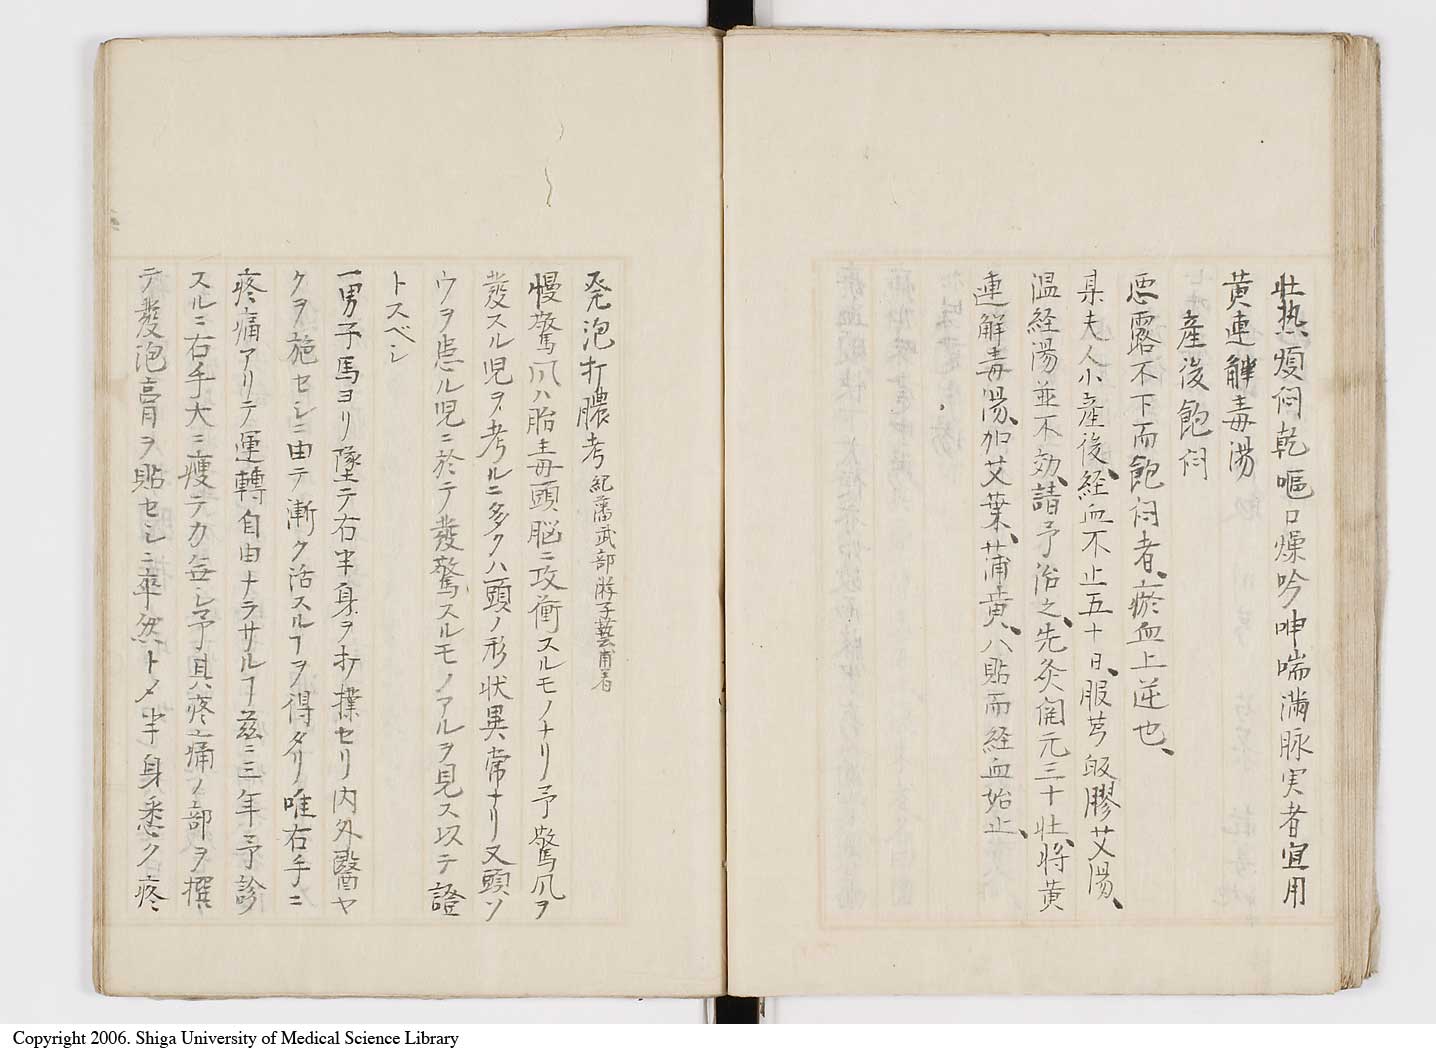 壮熱煩悶乾嘔口燥吟呻喘満脉実者宜用
黄連解毒湯
産後飽悶
悪露不下而飽悶者、瘀血上逆也、
某夫人小産後、経血不止五十日、服芎皈膠艾湯、
温経湯並不効、請予治之、先灸関元三十壮、将黄
連解毒湯、加艾葉、蒲黄、八貼而経血始止、
発泡打膿考 紀藩武部游子藝甫著
慢驚風ハ胎毒頭脳ニ攻衝スルモノナリ予驚風ヲ
発スル児ヲ考ルニ多クハ頭ノ形状異常ナリ又頭ソ
ウヲ患ル児ニ於テ発驚スルモノアルヲ見ス以テ證
トスベシ
一男子馬ヨリ墜テ右半身ヲ打撲セリ内外醫ヤ
クヲ施セシニ由テ漸ク活スルヿヲ得タリ唯右手ニ
疼痛アリテ運轉自由ナラサルヿ茲ニ三年予診
スルニ右手大ニ痩テ力無シ予其疼痛ノ部ヲ撰
テ發泡膏ヲ貼セシニ卒然トメ半身悉ク疼
Copyright 2006. Shiga University of Medical Science Library